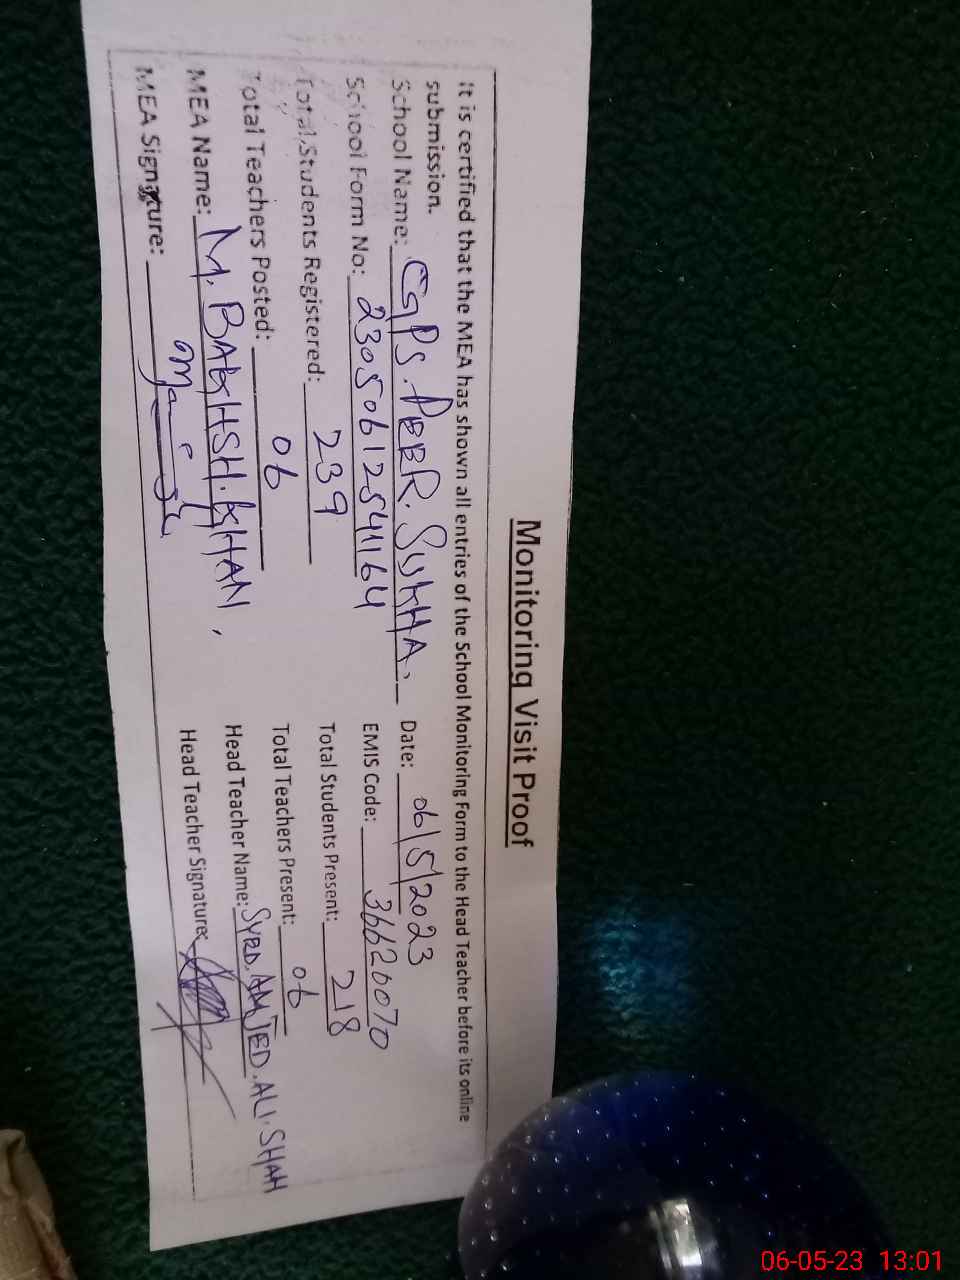 Monitoring Visit Proof
It is certified that the MEA has shown all entries of the School Monitoring Form to the Head Teacher before its online
submission.
School Name: GPS. PEER. SUKHA. Date: 06/5/2023
School Form No: 23050612541164 EMIS Code: 36620070
Total Students Registered: 239 Total Students Present: 218
Total Teachers Posted: 06 Total Teachers Present: 06
MEA Name: M. BAKHSH. KHAN. Head Teacher Name: SYED. AMJED. ALI. SHAH
MEA Signature: Head Teacher Signature:
06-05-23 13:01